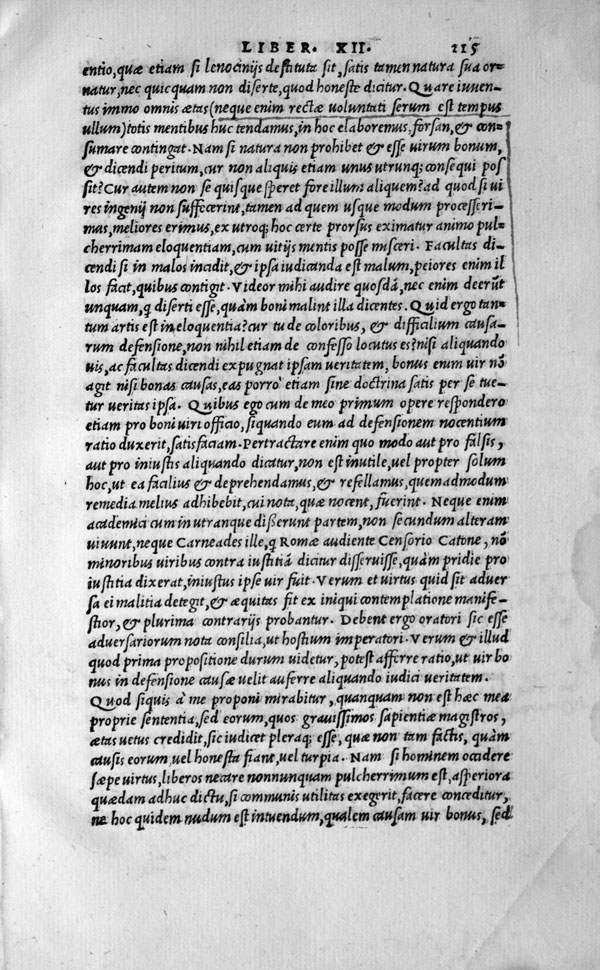 LIBER. XII. 215
entio, quæ etiam si lenocinijs destituta sit, satis tamen natura sua or-
natur, nec quicquam non diserte, quod honeste dicitur. Quare iuuen-
tus immo omnis ætas (neque enim rectæ uoluntati serum est tempus
ullum) totis mentibus huc tendamus, in hoc elaboremus, forsan, & con-
sumare contingat. Nam si natura non prohibet & esse uirum bonum,
& dicendi peritum, cur non aliquis etiam unus utrunq; consequi pos
sit? Cur autem non se quisque speret fore illum aliquem? ad quod si ui
res ingenij non suffecerint, tamen ad quem usque modum processeri-
mus, meliores erimus, ex utroq; hoc certe prorsus eximatur animo pul-
cherrimam eloquentiam, cum uitijs mentis posse misceri. Facultas di-
cendi si in malos incidit, & ipsa iudicanda est malum, peiores enim il
los facit, quibus contigit. Videor mihi audire quosdā, nec enim deerūt
unquam, q diserti esse, quàm boni malint illa dicentes. Quid ergo tan-
tum artis est in eloquentia? cur tu de coloribus, & difficilium causa-
rum defensione, non nihil etiam de confesso locutus es? nisi aliquando
uis, ac facultas dicendi expugnat ipsam ueritatem, bonus enim uir nō
agit nisi bonas causas, eas porro' etiam sine doctrina satis per se tue-
tur ueritas ipsa. Quibus ego cum de meo primum opere respondero
etiam pro boni uiri officio, siquando eum ad defensionem nocentium
ratio duxerit, satisfaciam. Pertractare enim quo modo aut pro falsis,
aut pro iniustis aliquando dicatur, non est inutile, uel propter solum
hoc, ut ea facilius & deprehendamus, & refellamus, quemadmodum
remedia melius adhibebit, cui nota, quæ nocent, fuerint. Neque enim
academici cum in utranque disserunt partem, non secundum alteram
uiuunt, neque Carneades ille, q Romæ audiente Censorio Catone, nō
minoribus uiribus contra iustitiā dicitur disseruisse, quàm pridie pro
iustitia dixerat, iniustus ipse uir fuit. Verum et uirtus quid sit aduer
sa ei malitia detegit, & æquitas fit ex iniqui contemplatione manife-
stior, & plurima contrarijs probantur. Debent ergo oratori sic esse
aduersariorum nota consilia, ut hostium imperatori. Verum & illud
quod prima propositione durum uidetur, potest afferre ratio, ut uir bo
nus in defensione causæ uelit auferre aliquando iudici ueritatem.
Quod siquis à me proponi mirabitur, quanquam non est hæc mea
proprie sententia, sed eorum, quos grauissimos sapientiæ magistros,
ætas uetus credidit, sic iudicet pleraq; esse, quæ non tam factis, quàm
causis eorum uel honesta fiant, uel turpia. Nam si hominem occidere
sæpe uirtus, liberos necare nonnunquam pulcherrimum est, asperiora
quædam adhuc dictu, si communis utilitas exegerit, facere conceditur,
ne hoc quidem nudum est intuendum, qualem causam uir bonus, sed